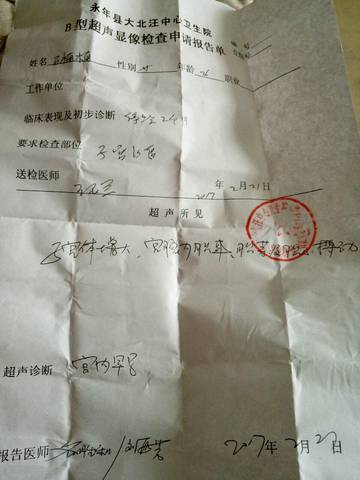 永年县大北汪中心卫生院
B型超声显像检查申请报告单
姓名 性别 女 年龄 26 职业
工作单位
临床表现及初步诊断 停经2个月
要求检查部位 子宫
送检医师
2017年2月21日
超声所见
子宫体增大,宫腔内胎囊、胎芽胎心搏动
超声诊断 宫内早孕
报告医师
2017年2月21日